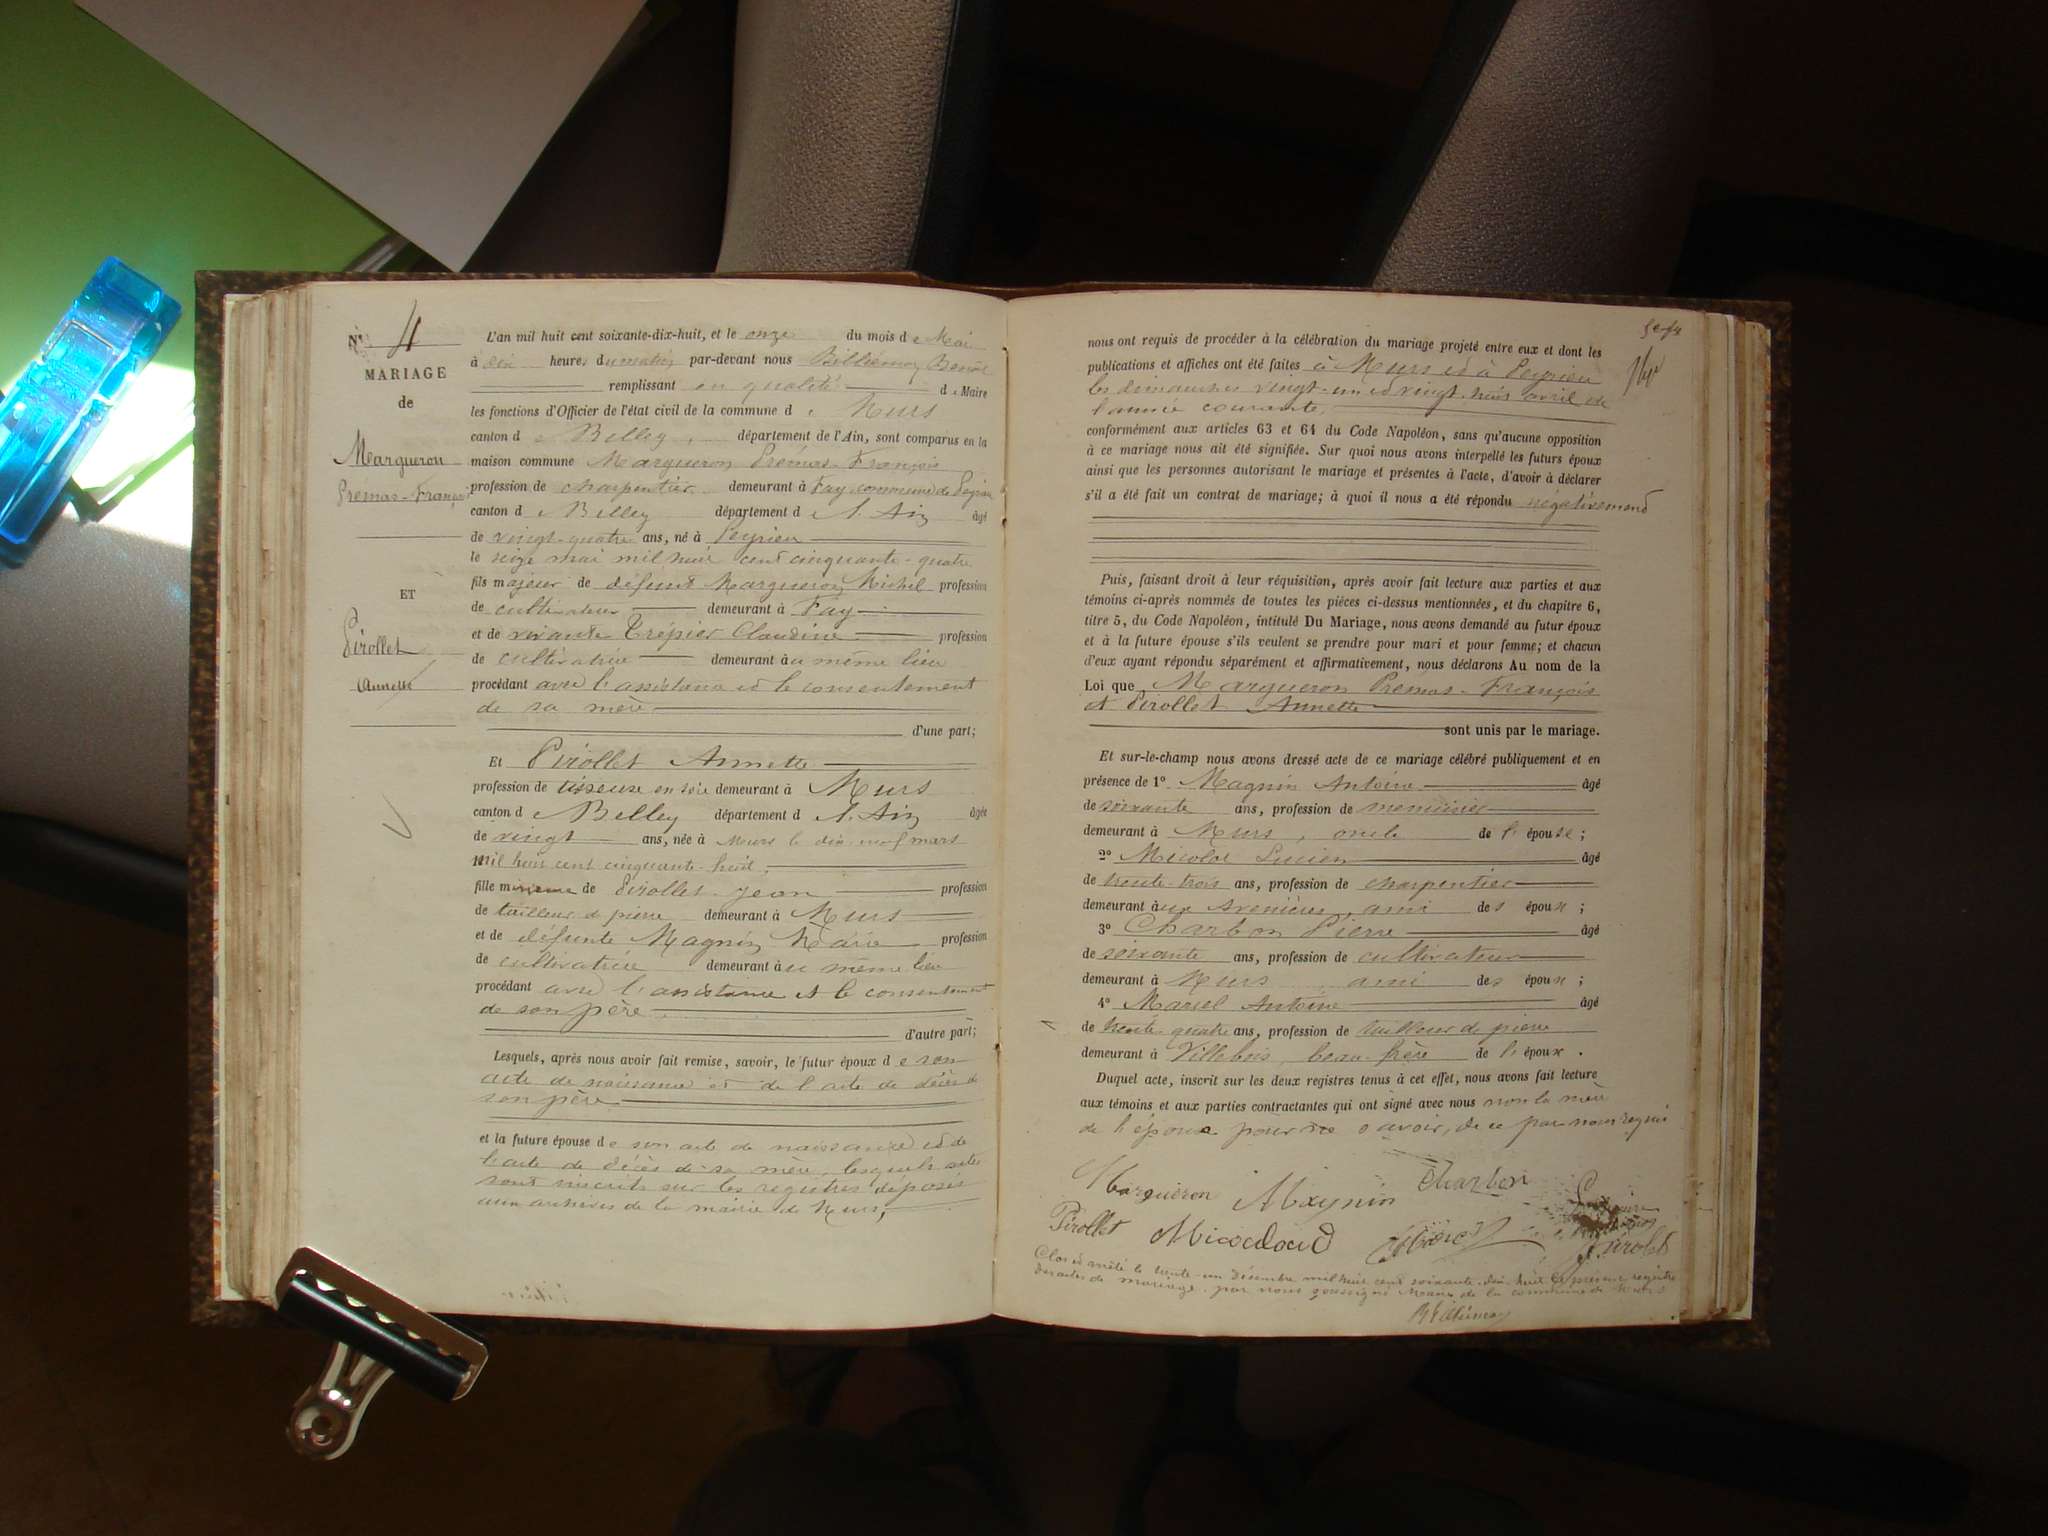 N° 4
MARIAGE
de
Margueron
Premas-François
ET
Pirollet
Annette
L'an mil huit cent soixante-dix-huit, et le onze du mois de Mai
à dix heures du matin par-devant nous Billiémaz Benoît
remplissant en qualité de Maire
les fonctions d'Officier de l'état civil de la commune de Murs
canton de Belley, département de l'Ain, sont comparus en la
maison commune Margueron Premas-François
profession de charpentier demeurant à Fay commune de Peyrieu
canton de Belley département de l'Ain âgé
de vingt-quatre ans, né à Peyrieu
le seize mai mil huit cent cinquante-quatre
fils majeur de défunt Margueron Michel profession
de cultivateur demeurant à Fay
et de vivante Trépier Claudine profession
de cultivatrice demeurant au même lieu
procédant avec l'assistance et le consentement
de sa mère
d'une part;
Et Pirollet Annette
profession de tisseuse en soie demeurant à Murs
canton de Belley département de l'Ain âgée
de vingt ans, née à Murs le dix-neuf mars
mil huit cent cinquante-huit,
fille mineure de Pirollet Jean profession
de tailleur de pierre demeurant à Murs
et de défunte Magnin Marie profession
de cultivatrice demeurant au même lieu
procédant avec l'assistance et le consentement
de son père
d'autre part;
Lesquels, après nous avoir fait remise, savoir, le futur époux de son
acte de naissance et de l'acte de décès de
son père
et la future épouse de son acte de naissance et de
l'acte de décès de sa mère, lesquels actes
sont inscrits sur les registres déposés
aux archives de la mairie de Murs,
nous ont requis de procéder à la célébration du mariage projeté entre eux et dont les
publications et affiches ont été faites à Murs et à Peyrieu
les dimanches vingt-un et vingt-huit avril de
l'année courante
conformément aux articles 63 et 64 du Code Napoléon, sans qu'aucune opposition
à ce mariage nous ait été signifiée. Sur quoi nous avons interpellé les futurs époux
ainsi que les personnes autorisant le mariage et présentes à l'acte, d'avoir à déclarer
s'il a été fait un contrat de mariage; à quoi il nous a été répondu négativement
Puis, faisant droit à leur réquisition, après avoir fait lecture aux parties et aux
témoins ci-après nommés de toutes les pièces ci-dessus mentionnées, et du chapitre 6,
titre 5, du Code Napoléon, intitulé Du Mariage, nous avons demandé au futur époux
et à la future épouse s'ils veulent se prendre pour mari et pour femme; et chacun
d'eux ayant répondu séparément et affirmativement, nous déclarons Au nom de la
Loi que Margueron Premas-François
et Pirollet Annette
sont unis par le mariage.
Et sur-le-champ nous avons dressé acte de ce mariage célébré publiquement et en
présence de 1° Magnin Antoine âgé
de soixante ans, profession de menuisier
demeurant à Murs, oncle de l'épouse;
2° Micolod Lucien âgé
de trente-trois ans, profession de charpentier
demeurant aux Avenières, ami des époux;
3° Charbon Pierre âgé
de soixante ans, profession de cultivateur
demeurant à Murs ami des époux;
4° Marcel Antoine âgé
de trente-quatre ans, profession de tailleur de pierre
demeurant à Villebois, beau-frère de l'époux.
Duquel acte, inscrit sur les deux registres tenus à cet effet, nous avons fait lecture
aux témoins et aux parties contractantes qui ont signé avec nous non la mère
de l'époux pour ne savoir, de ce par nous requis
Margueron Magnin Charbon
Pirollet Pirolet
Clos et arrêté le trente-un décembre mil huit cent soixante-dix-huit le présent registre
des actes de mariage, par nous soussigné Maire de la commune de Murs
Billiémaz